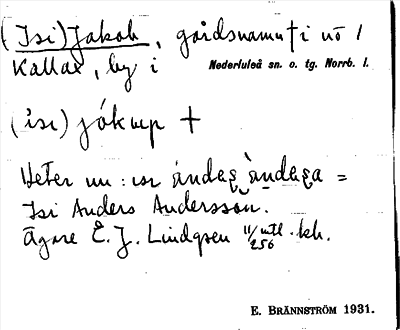 (Isi) Jakob, gårdsnamn † i nö 1
Kallax, by i Nederluleå sn. o. tg. Norrb. l.
(ìsı) jókup +
Heter nu: ısı ándeʂ àndeʂa =
Isi Anders Andersson.
Ägare E. J. Lindgren 11/256 mtl kh.
E. BRÄNNSTRÖM 1931.